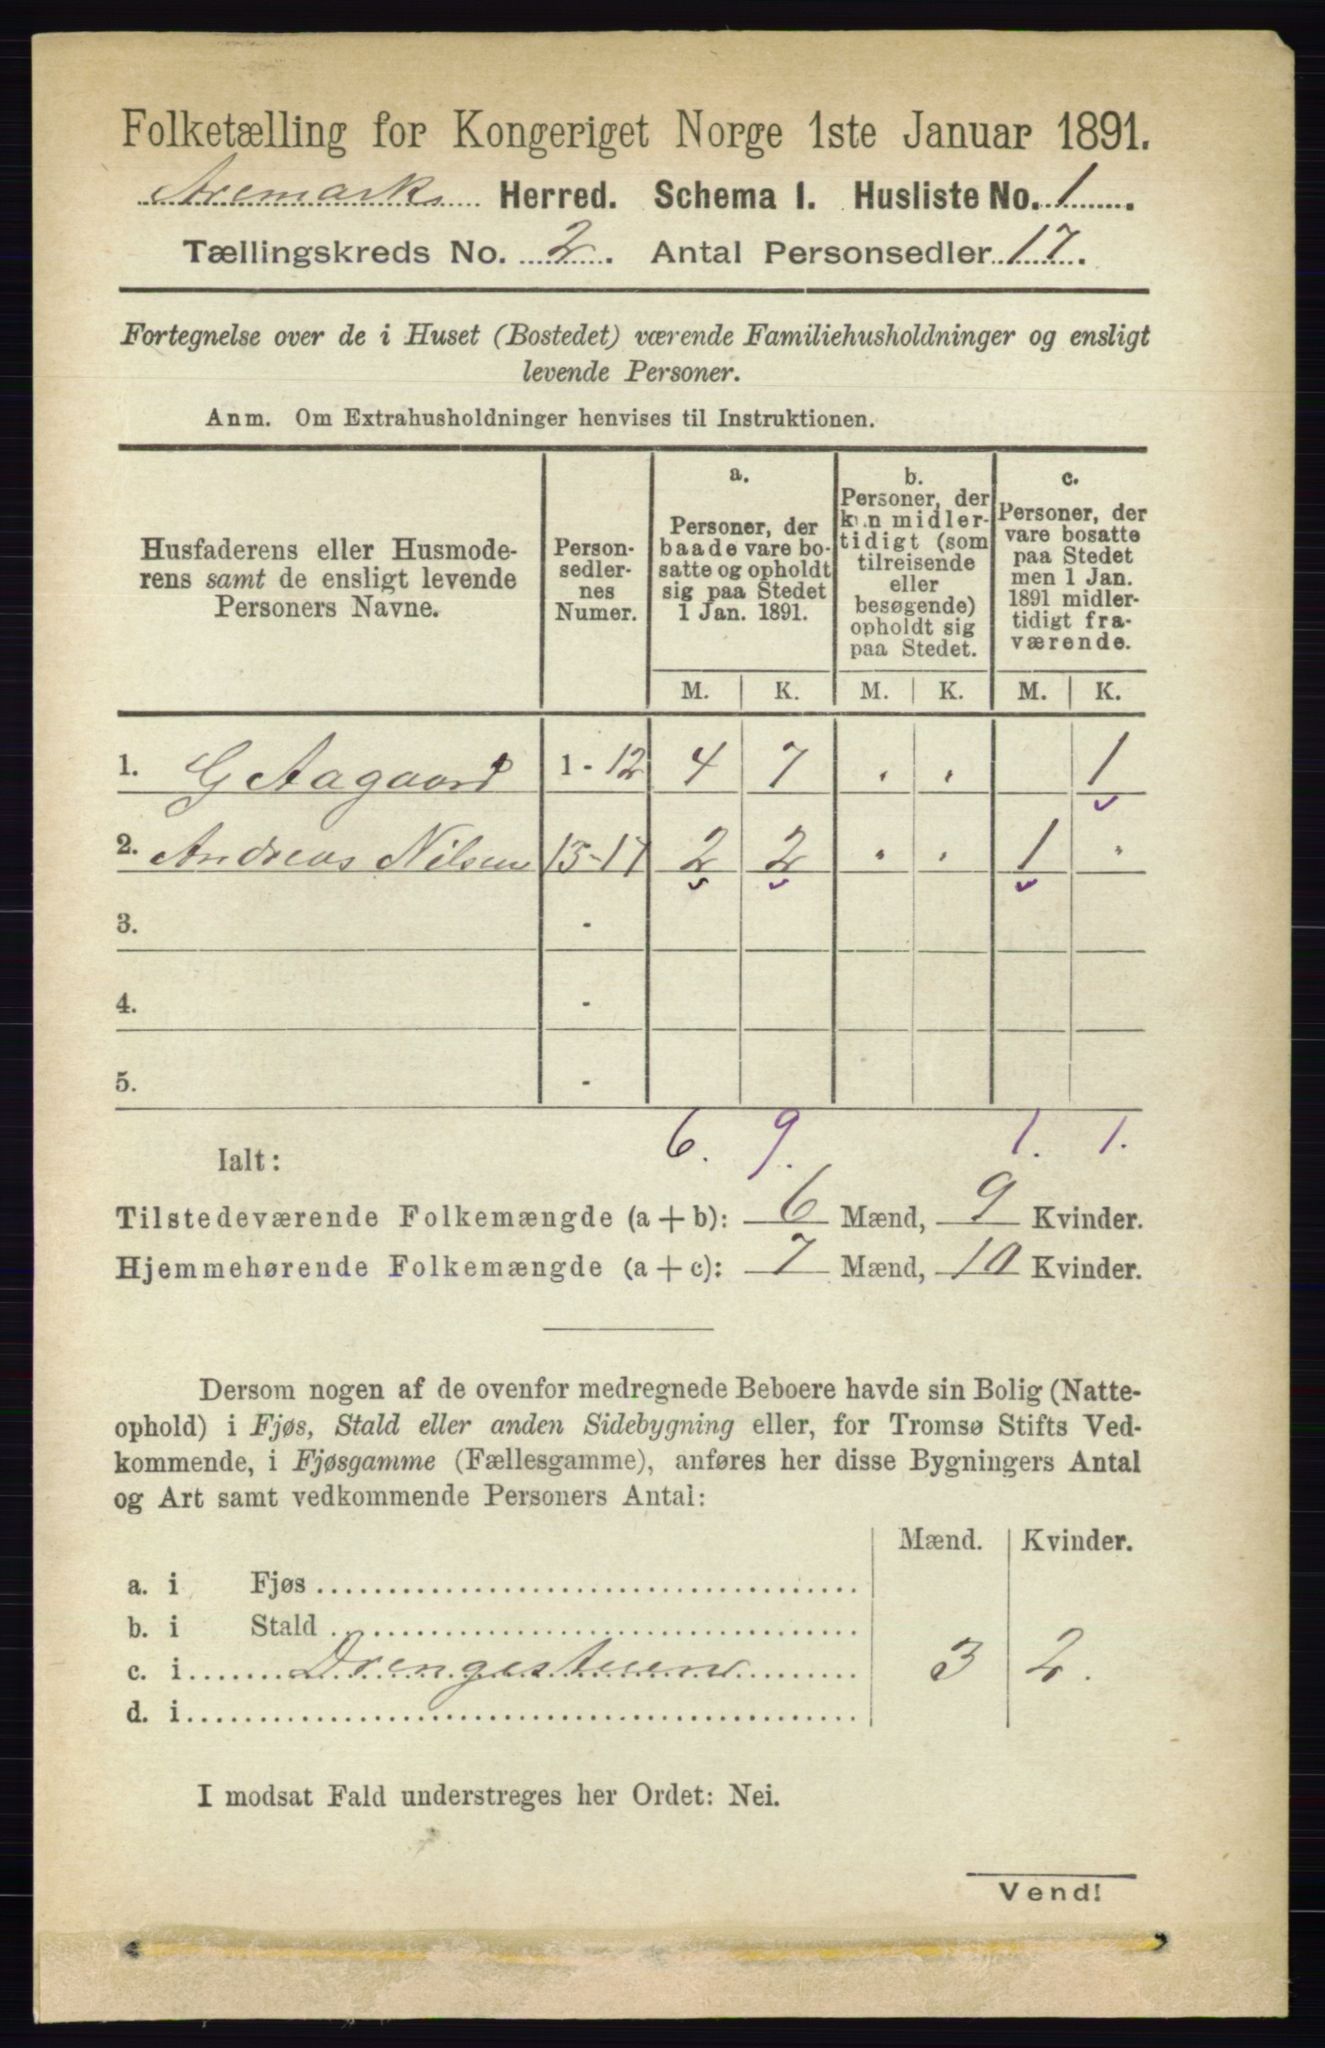 Folketælling for Kongeriget Norge 1ste Januar 1891.
Aremark Herred. Schema I. Husliste No. 1
Tællingskreds No. 2. Antal Personsedler 17.
Fortegnelse over de i Huset (Bostedet) værende Familiehusholdninger og ensligt
levende Personer.
Anm. Om Extrahusholdninger henvises til Instruktionen.
Husfaderens eller Husmode-
rens samt de ensligt levende
Personers Navne.
Person-
sedler-
nes
Numer.
a.
Personer, der
baade vare bo-
satte og opholdt
sig paa Stedet
1 Jan. 1891.
b.
Personer, der
kun midler-
tidigt (som
tilreisende
eller
besøgende)
opholdt sig
paa Stedet.
c.
Personer, der
vare bosatte
paa Stedet
men 1 Jan.
1891 midler-
tidigt fra-
værende.
M. K. M. K. M. K.
1. G Aagaard 1 - 12 4 7 . . 1
2. Andreas Nilsen 13-17 2 2 . . 1 .
3. -
4. -
5. -
Ialt: 6. 9. 1. 1.
Tilstedeværende Folkemængde (a + b): 6 Mænd, 9 Kvinder.
Hjemmehørende Folkemængde (a + c): 7 Mænd, 10 Kvinder.
Dersom nogen af de ovenfor medregnede Beboere havde sin Bolig (Natte-
ophold) i Fjøs, Stald eller anden Sidebygning eller, for Tromsø Stifts Ved-
kommende, i Fjøsgamme (Fællesgamme), anføres her disse Bygningers Antal
og Art samt vedkommende Personers Antal:
Mænd. Kvinder.
a. i Fjøs
b. i Stald
c. i Drengestuen 3 2.
d. i
I modsat Fald understreges her Ordet: Nei.
Vend!